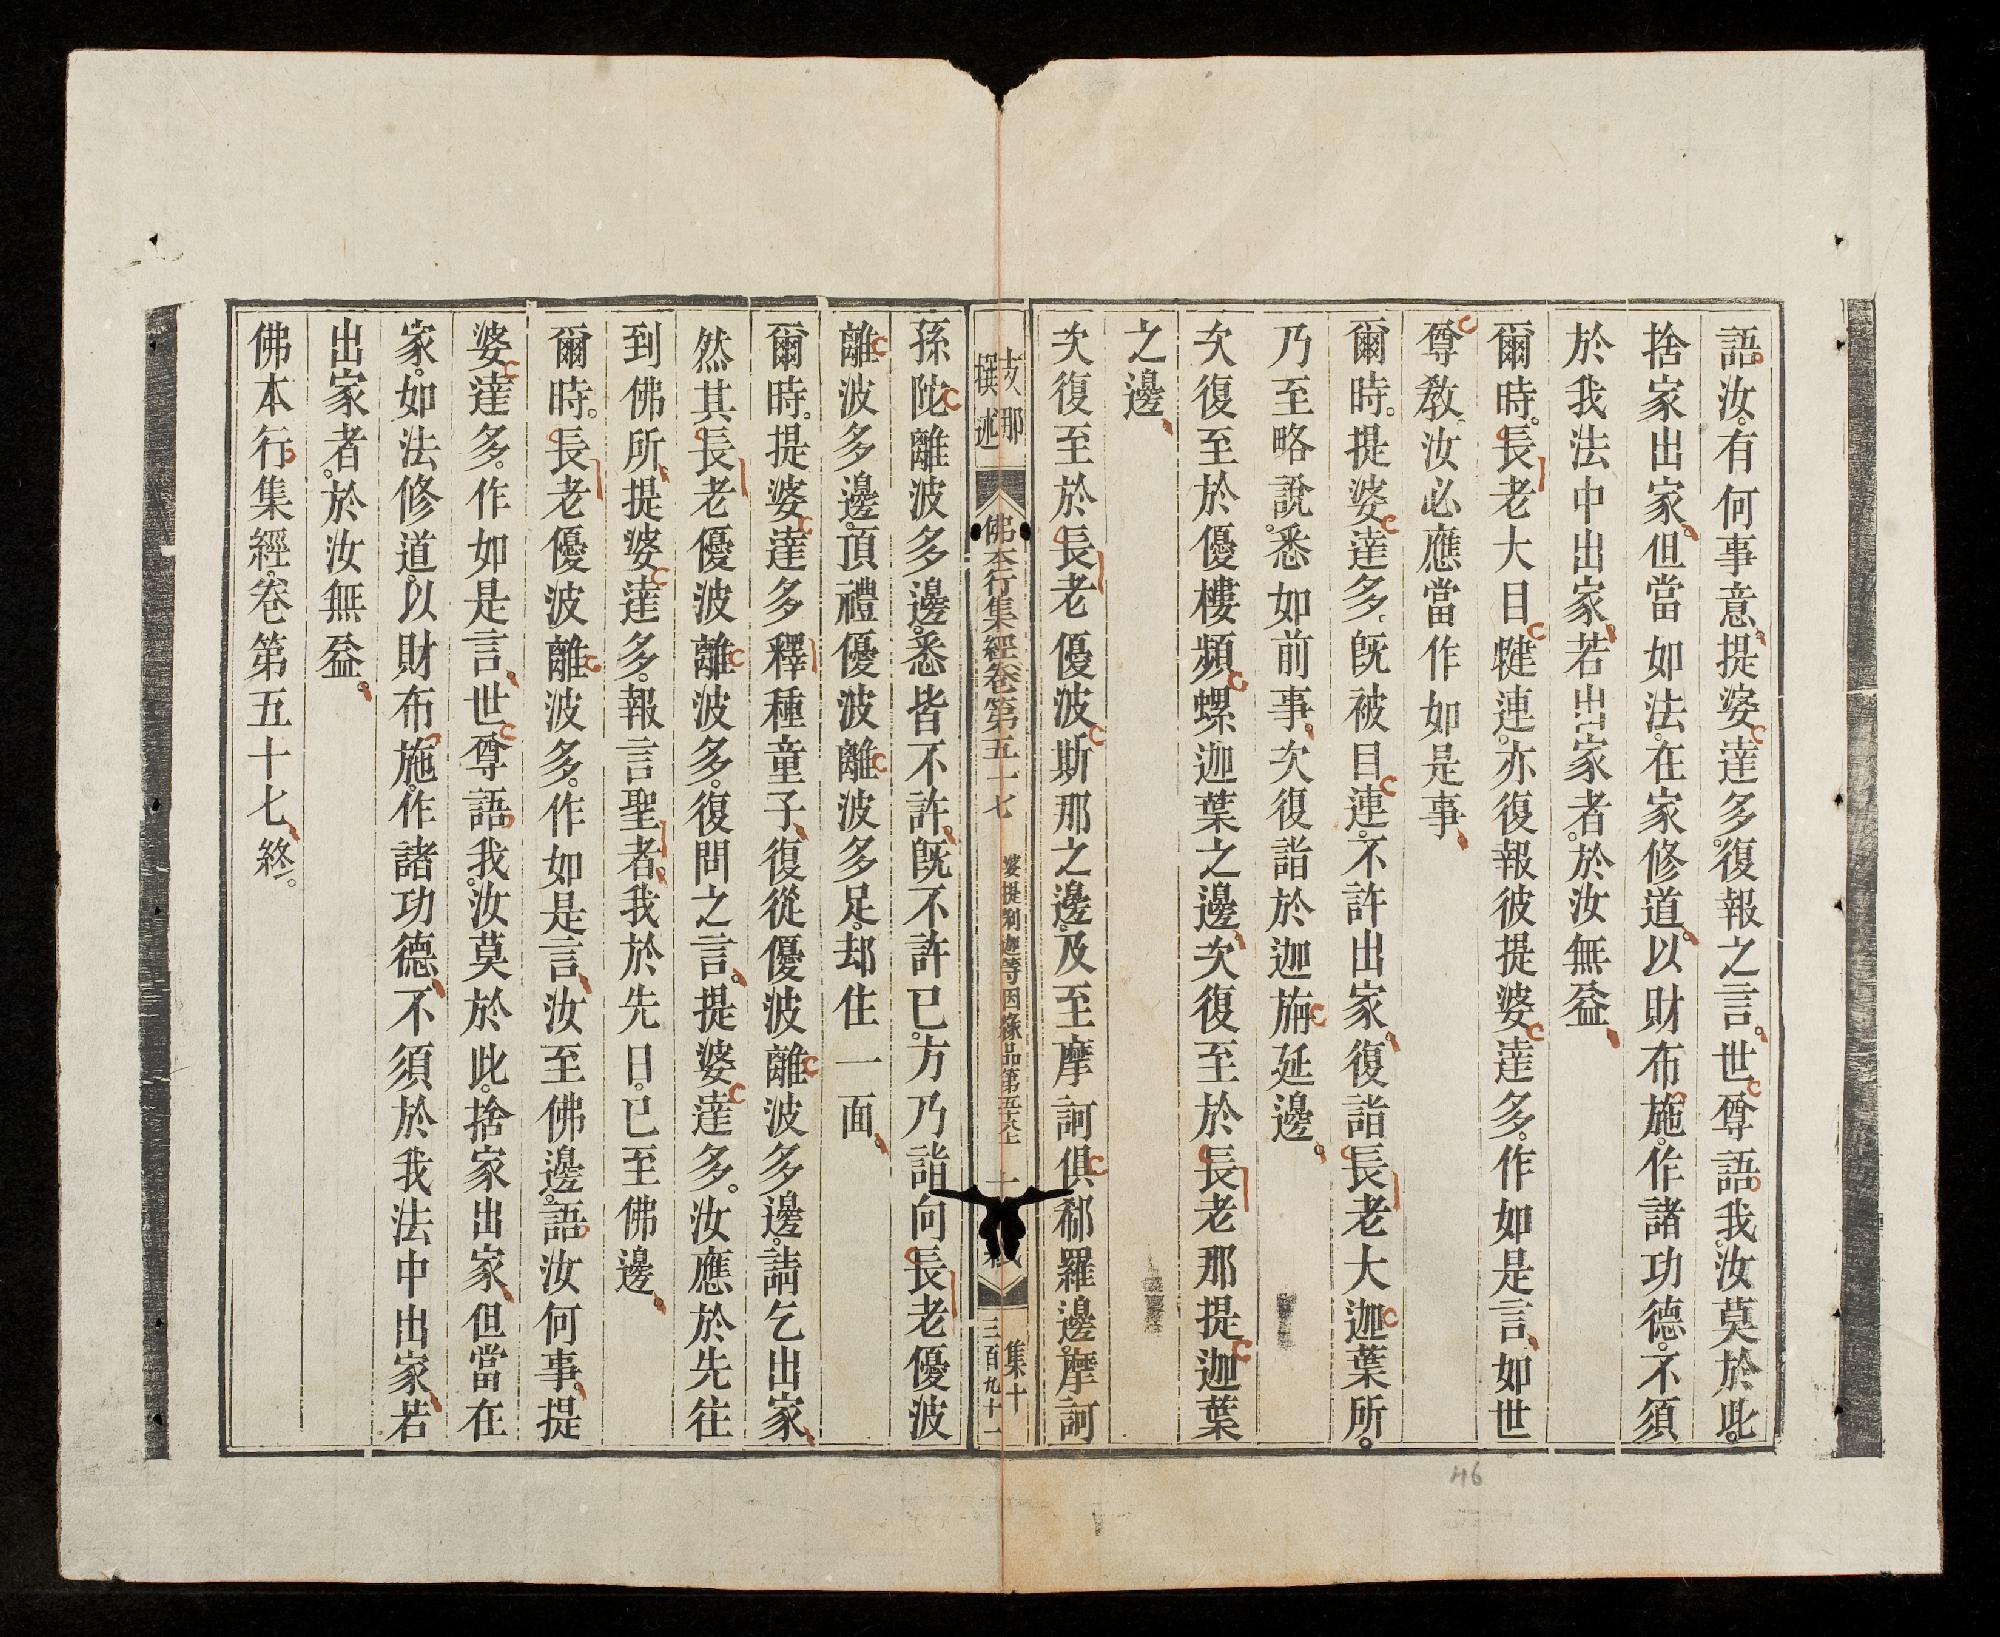 語汝。有何事意。提婆達多。復報之言。世尊語我。汝莫於此。
捨家出家。但當如法。在家修道。以財布施。作諸功德。不須
於我法中出家。若出家者。於汝無益。
爾時。長老大目犍連。亦復報彼提婆達多。作如是言。如世
尊教。汝必應當作如是事。
爾時。提婆達多。既被目連。不許出家。復詣長老大迦葉所。
乃至略說。悉如前事。次復詣於迦旃延邊。
次復至於優樓頻螺迦葉之邊。次復至於長老那提迦葉
之邊。
次復至於長老優波斯那之邊。及至摩訶俱郗羅邊。摩訶
支那
撰述
佛本行集經卷第五十七
婆提唎迦等因緣品第五十八上
集十
三百九十一
孫陀離波多邊。悉皆不許。既不許已。方乃詣向長老優波
離波多邊。頂禮優波離波多足。却住一面。
爾時。提婆達多釋種童子。復從優波離波多邊。請乞出家。
然其長老優波離波多。復問之言。提婆達多。汝應於先往
到佛所。提婆達多。報言聖者。我於先日。已至佛邊。
爾時。長老優波離波多。作如是言。汝至佛邊。語汝何事。提
婆達多。作如是言。世尊語我。汝莫於此。捨家出家。但當在
家。如法修道。以財布施。作諸功德。不須於我法中出家。若
出家者。於汝無益。
佛本行集經。卷第五十七。終。
46